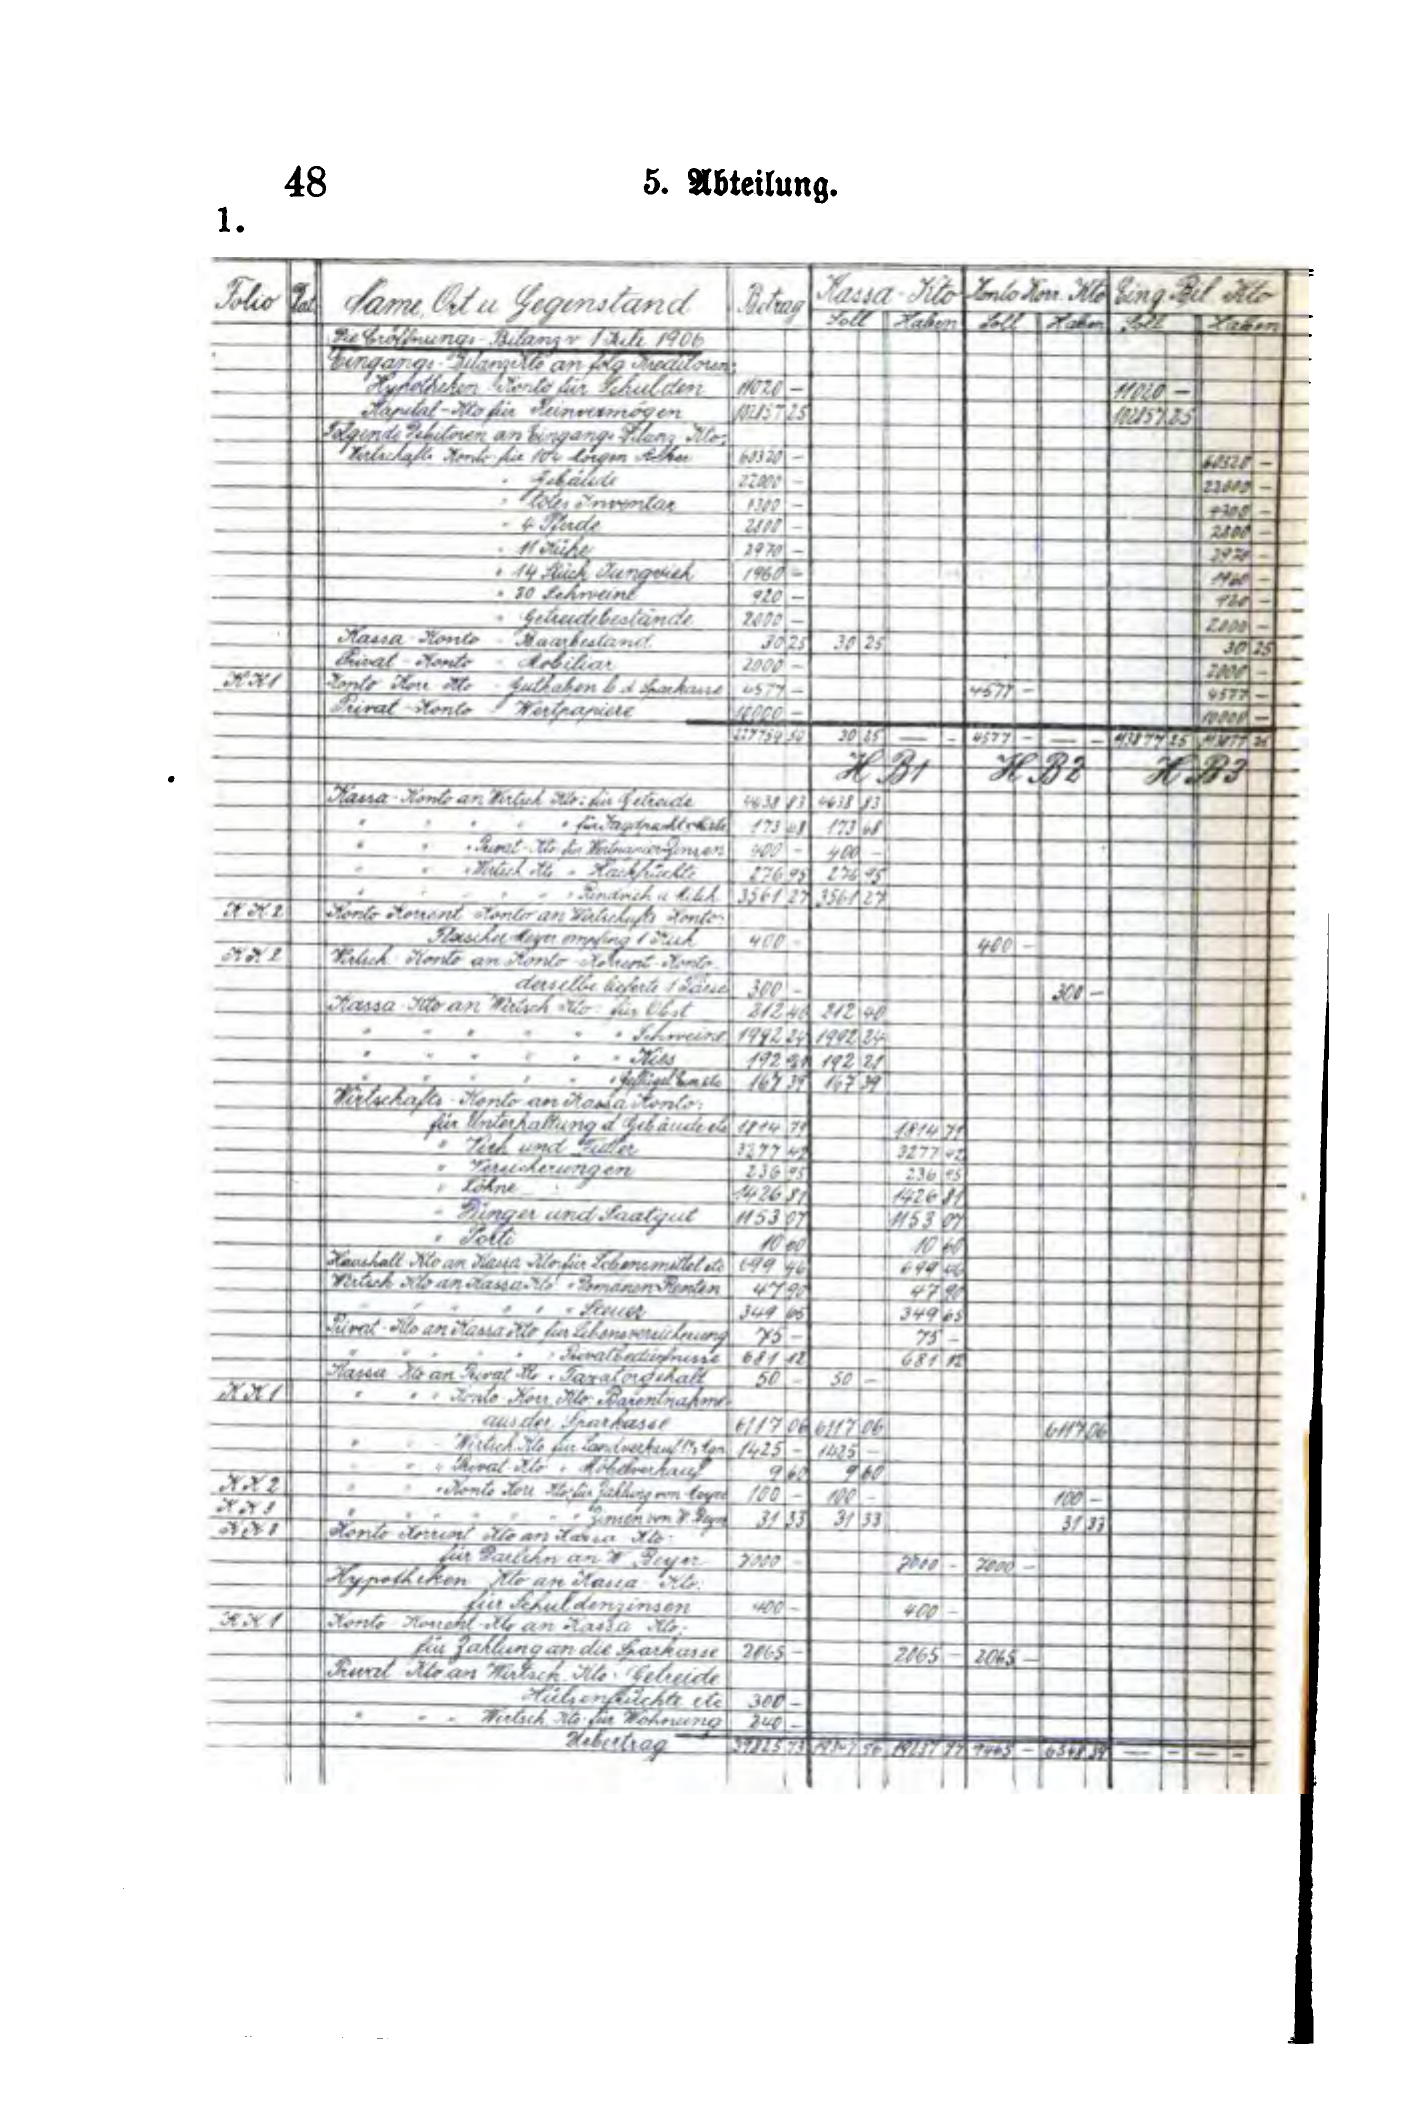 48 5. Abteilung.
1.
Folio Dat. Name, Ort u Gegenstand Betrag Kassa-Kto Konto Korr. Kto Eing. Bil. Kto
Soll Haben Soll Haben Soll Haben
Die Eröffnungs-Bilanz v 1 Juli 1906
Eingangs-Bilanz Kto an folg Kreditoren:
Hypotheken Konto für Schulden 11020 – 11020 –
Kapital-Kto für Reinvermögen 102857 25 102857 25
Folgende Debitoren an Eingangs Bilanz Kto:
Wirtschafts Konto für Morgen Acker 60320 – 60320 –
" Gebäude 22000 – 22000 –
" totes Inventar 4300 – 4300 –
" 4 Pferde 2800 – 2800 –
" 11 Kühe 2970 – 2970 –
" 14 Stück Jungvieh 1960 – 1960 –
" 30 Schweine 920 – 920 –
" Getreidebestände 2000 – 2000 –
Kassa-Konto " Baarbestand 30 25 30 25 30 25
Privat-Konto " Mobiliar 2000 – 2000 –
KK1 Konto Korr Kto " Guthaben b d Sparkasse 4577 – 4577 – 4577 –
Privat-Konto " Wertpapiere 10000 – 10000 –
227754 50 30 25 — – 4577 – — – 113877 25 113877 25
H B1 H B2 H B3
Kassa-Konto an Wirtsch Kto: für Getreide 4638 83 4638 83
" " " " " für Jagdpacht 173 68 173 68
" " " Privat-Kto für Wertpapier Zinsen 400 – 400 –
" " " Wirtsch Kto " Hackfrüchte 276 95 276 95
" " " " " " Rindvieh u Milch 3561 27 3561 27
KK2 Konto Korrent Konto an Wirtschafts Konto:
Fleischer Meyer empfing 1 Kuh 400 – 400 –
KK2 Wirtsch. Konto an Konto-Korrent-Konto
derselbe lieferte 1 Färse 300 – 300 –
Kassa-Kto an Wirtsch Kto: für Obst 212 40 212 40
" " " " " " Schweine 1992 24 1992 24
" " " " " " Kies 192 21 192 21
" " " " " " Geflügel 167 39 167 39
Wirtschafts-Konto an Kassa Konto:
für Unterhaltung d Gebäude etc 1814 79 1814 79
" Vieh und Futter 3277 42 3277 42
" Versicherungen 236 95 236 95
" Löhne 1426 81 1426 81
" Dünger und Saatgut 1153 07 1153 07
" Porti 10 60 10 60
Haushalt Kto an Kassa Kto für Lebensmittel etc 699 46 699 46
Wirtsch Kto an Kassa Kto " Domänen Renten 47 90 47 90
" " " " " " Steuer 349 65 349 65
Privat-Kto an Kassa Kto für Lebensversicherung 75 – 75 –
" " " " " " Privatbedürfnisse 681 12 681 12
Kassa Kto an Privat Kto " Taxatorgehalt 50 – 50 –
KK1 " " " Konto Korr Kto: Barentnahme
aus der Sparkasse 6117 06 6117 06 6117 06
" " " Wirtsch Kto für Landverkauf 1425 – 1425 –
" " " Privat Kto " Möbelverkauf 9 60 9 60
KK2 " " " Konto Korr Kto: für Zahlung von Meyer 100 – 100 – 100 –
KK3 " " " " " " Zinsen von W. Beyer 31 33 31 33 31 33
Konto Korrent Kto an Kassa Kto:
für Darlehn an W Beyer 7000 – 7000 – 7000 –
Hypotheken Kto an Kassa-Kto:
für Schuldenzinsen 400 – 400 –
KK1 Konto Korrent-Kto an Kassa Kto:
für Zahlung an die Sparkasse 2065 – 2065 – 2065 –
Privat Kto an Wirtsch. Kto: Getreide
Hülsenfrüchte etc 300 –
" " " Wirtsch. Kto: für Wohnung 240 –
Uebertrag 39825 73 19347 96 19237 77 9465 – 6548 39 — – — –